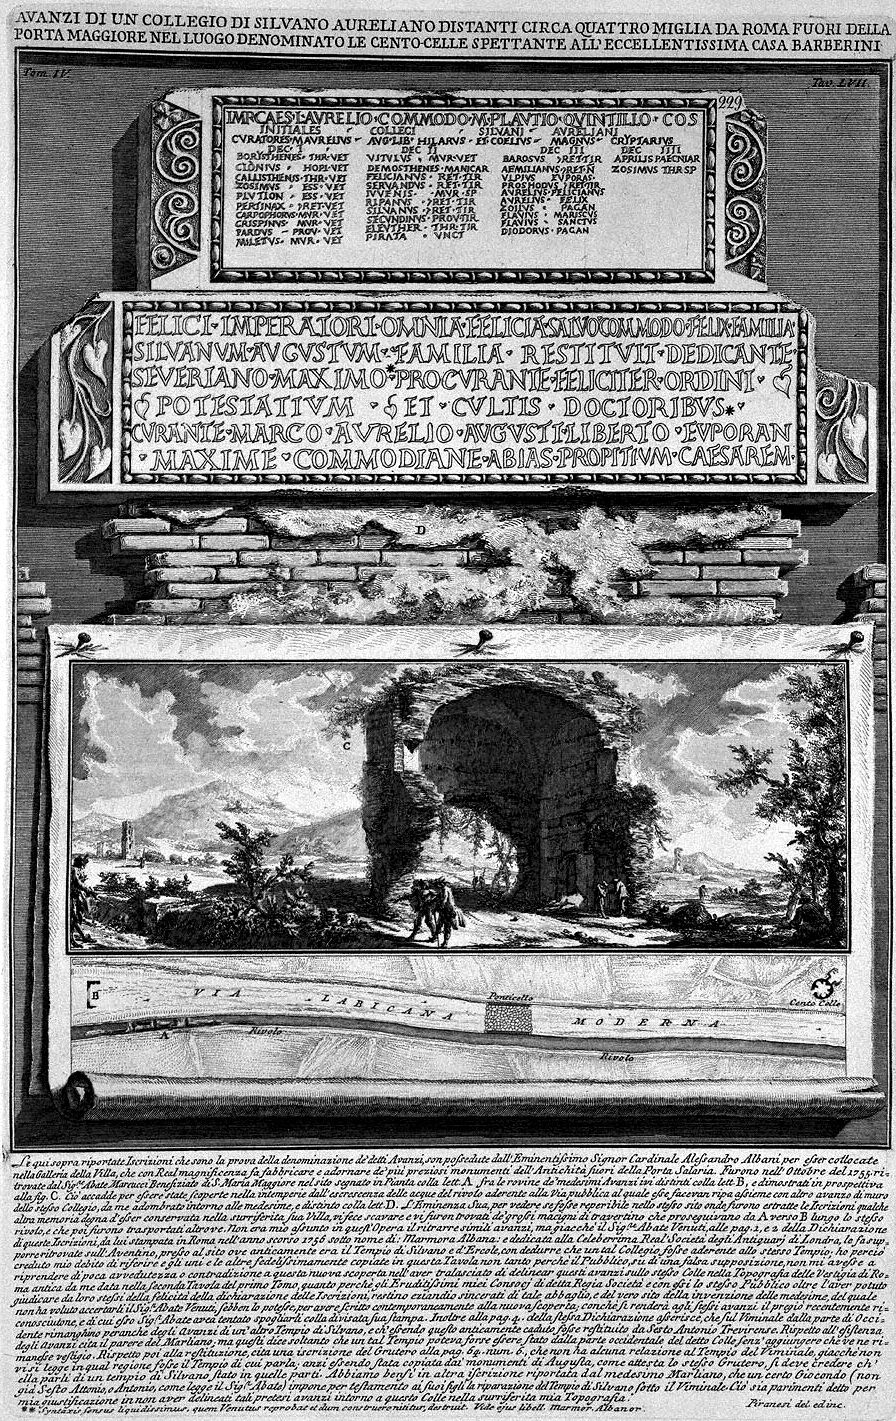 AVANZI DI UN COLLEGIO DI SILVANO AURELIANO DISTANTI CIRCA QUATTRO MIGLIA DA ROMA FUORI DELLA
PORTA MAGGIORE NEL LUOGO DENOMINATO LE CENTO-CELLE SPETTANTE ALL' ECCELLENTISSIMA CASA BARBERINI
Tom. IV.
Tav. LVII.
229
IMP·CAES·L·AVRELIO·COMMODO·M·PLAVTIO·QVINTILLO·COS
INITIALES COLLEGI SILVANI AVRELIANI
CVRATORES·M·AVRELIVS·AVG·LIB·HILARVS·ET·COELIVS·MAGNVS·CRYPTARIVS
DEC I DEC II DEC III DEC IIII
BORYSTHENES·THR·VET VITVLVS·MVR·VET BAROSVS·RET·TIR APRILIS PAEGNIAR
CLONIVS·HOPL·VET DEMOSTHENES·MANICAR AEMILIANVS ZOSIMVS THR SP
CALLISTHENES·THR·VET FELICIANVS·RET·TIR VLPIVS EVPORAS
ZOSIMVS·ESS·VET SERVANDVS·RET·TIR PROSHODVS RET TIR
PLVTION·ESS·VET IVVENIS·MVR·SP AVRELIVS·FELICIANVS
PERTINAX·RET·VET RIPANVS·RET·TIR AVRELIVS·FELIX
CARPOPHORVS·MVR·VET SILVANVS·RET·TIR ZOILVS·PAGAN
CRISPINVS·MVR·VET SECVNDINVS·PROV·TIR FLAVIVS·MARISCVS
PARDVS·PROV·VET ELEVTHER·THR·TIR FLAVIVS·SANCTVS
MILETVS·MVR·VET PIRATA·VNCT DIODORVS·PAGAN
FELICI·IMPERATORI·OMNIA·FELICIA·SALVO·COMMODO·FELIX·FAMILIA
SILVANVM·AVGVSTVM·FAMILIA·RESTITVIT·DEDICANTE·
SEVERIANO·MAXIMO*PROCVRANTE·FELICITER·ORDINI·
POTESTATIVM·ET·CVLTIS·DOCTORIBVS*
CVRANTE·MARCO·AVRELIO·AVGVSTI·LIBERTO·EVPORAN
·MAXIME·COMMODIANE·ABIAS·PROPITIVM·CAESAREM·
D
C
B
VIA LABICANA MODERNA
Ponticello
Cento Celle
A
Rivolo
Rivolo
Le qui sopra riportate Iscrizioni che sono la prova della denominazione de' detti Avanzi, son possedute dall'Eminentissimo Signor Cardinale Alessandro Albani per esser collocate
nella Galleria della Villa, che con Real magnificenza fa fabbricare e adornare de' più preziosi monumenti dell'Antichità fuori della Porta Salaria. Furono nell'Ottobre del 1755 ri-
trovate dal Sig.r Abate Marcucci Benefiziato di S. Maria Maggiore nel sito segnato in Pianta colla lett. A fra le rovine de' medesimi Avanzi ivi distinti colla lett. B, e dimostrati in prospettiva
alla fig. C. Ciò accadde per essere state scoperte nella intemperie dall'escrescenza delle acque del rivolo aderente alla Via pubblica al quale esse facevan ripa assieme con altro avanzo di muro
dello stesso Collegio, da me adombrato intorno alle medesime, e distinto colla lett. D. L'Eminenza Sua, per vedere se fosse reperibile nello stesso sito onde furono estratte le Iscrizioni qualche
altra memoria degna d'esser conservata nella surriferita sua Villa, vi fece scavare e vi furon trovati de' grossi macigni di travertino che proseguivano da A verso B lungo lo stesso
rivolo, e che poi furono trasportati altrove. Non era mio assunto in quest'Opera il ritrarre simili avanzi, ma giacché il Sig.r Abate Venuti, alle pag. 3, e 9 della Dichiarazione
di queste Iscrizioni, da lui stampata in Roma nell'anno scorso 1756 sotto nome di: Marmora Albana: e dedicata alla Celeberrima Real Società degli Antiquarj di Londra, lo fa sup-
porre ritrovate sull'Aventino, presso al sito ove anticamente era il Tempio di Silvano e d'Ercole, con dedurre che un tal Collegio fosse aderente allo stesso Tempio; ho perciò
creduto mio debito di riferire e gli uni e le altre fedelissimamente copiate in questa Tavola non tanto perché il Pubblico, su di una falsa supposizione, non mi avesse a
riprendere di poca avvedutezza o contradizione a questa nuova scoperta nell'aver tralasciato di delinear questi avanzi sullo stesso Colle nella Topografia delle Vestigia di Ro-
ma antica da me data nella seconda Tavola del primo Tomo, quanto perché gli Eruditissimi miei Consocj di detta Regia Società e con essi lo stesso Pubblico oltre l'aver potuto
giudicare da loro stessi della felicità della dichiarazione delle Iscrizioni, restino eziandio sincerati di tale abbaglio, e del vero sito della invenzione delle medesime, del quale
non ha voluto accertarli il Sig.r Abate Venuti, sebben lo potesse, per avere scritto contemporaneamente alla nuova scoperta; conché si renderà agli stessi avanzi il pregio recentemente ri-
conosciutone, e di cui esso Sig.r Abate area tentato spogliarli colla divisata sua stampa. Inoltre alla pag. 4. della stessa Dichiarazione asserisce, che sul Viminale dalla parte di Occi-
dente rimanghino peranche degli Avanzi di un'altro Tempio di Silvano, e ch'essendo questo anticamente caduto, fosse restituito da Sesto Antonio Trevirense. Rispetto all'esistenza
degli avanzi cita il parere del Marliano, ma questi dice soltanto che un tal Tempio poteva forse essere stato dalla parte occidentale del detto Colle, senz'aggiungere che ve ne ri-
manesse vestigio. Rispetto poi alla restituzione, cita una iscrizione del Grutero alla pag. 64. num. 6, che non ha alcuna relazione al Tempio del Viminale, giacché non
vi si legge in qual regione fosse il Tempio di cui parla, anzi essendo stata copiata dai monumenti di Augusta, come attesta lo stesso Grutero, si deve credere ch'
ella parli di un tempio di Silvano stato in quelle parti. Abbiamo bensì in altra iscrizione riportata dal medesimo Marliano, che un certo Giocondo (non
già Sesto Attonio, e Antonio, come legge il Sig.r Abate) impone per testamento ai suoi figli la riparazione del Tempio di Silvano sotto il Viminale. Ciò sia parimenti detto per
mia giustificazione in non aver delineati tali pretesi avanzi intorno a questo Colle nella surriferita mia Topografia.
** Syntaxis, sensus liquidissimus, quem Venutus reprobat et dum construere nititur, destruit. Vide ejus libell. Marmor. Albanor.
Piranesi del. ed inc.